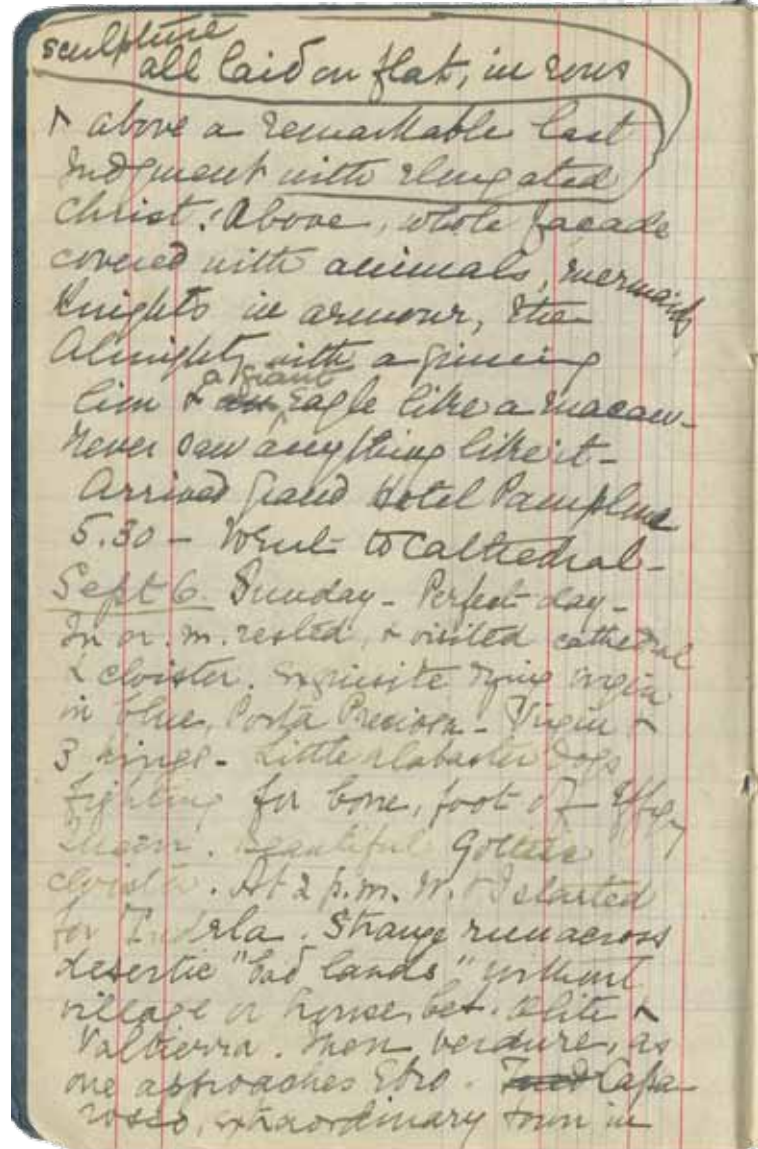 sculpture
all laid on flat, in rows
& above a remarkable last
Judgment with elongated
Christ. Above, whole façade
covered with animals, mermaids
Knights in armour, the
Almighty with a grinning
a giant
lion & an eagle like a macaw-
never saw anything like it-
Arrived Grand Hotel Pamplona
5.30 - Went to Cathedral-
Sept 6. Sunday - Perfect day-
In a.m. rested, & visited cathedral
& cloister. Exquisite dying virgin
in blue, Porta Preciosa - Virgin &
3 kings - Little alabaster dogs
fighting for bone, foot of Effigy
Queen. Beautiful Gothic
cloister. At 2 p.m. W. & I started
for Tudela. Strange run across
desertic "bad lands" without
village or house, bet. Olite &
Valtierra. Then verdure, as
one approaches Ebro. Capa
rosso, extraordinary town in